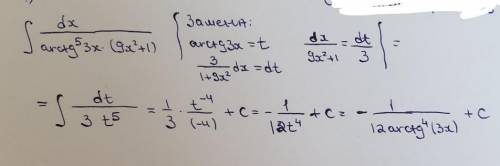 ∫ dx / (arctg⁵3x · (9x²+1)) { Замена: arctg3x = t, 3/(1+9x²) dx = dt, dx/(9x²+1) = dt/3 } =
= ∫ dt / (3 t⁵) = 1/3 · t⁻⁴/(-4) + C = - 1/(12t⁴) + C = - 1/(12arctg⁴(3x)) + C